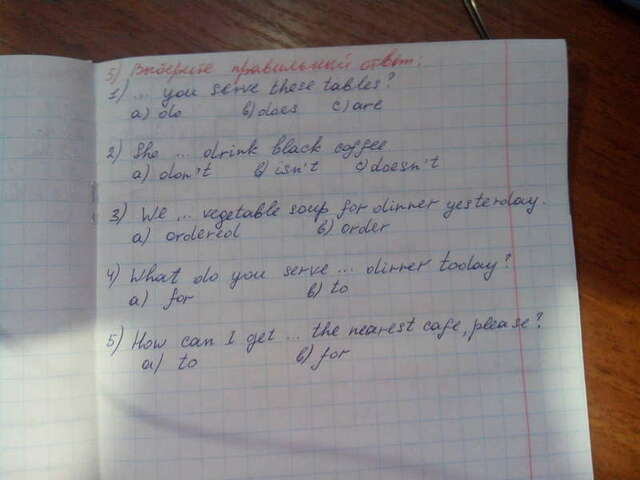 5) Выберите правильный ответ:
1) ... you serve these tables?
a) do b) does c) are
2) She ... drink black coffee.
a) don't b) isn't c) doesn't
3) We ... vegetable soup for dinner yesterday.
a) ordered b) order
4) What do you serve ... dinner today?
a) for b) to
5) How can I get ... the nearest cafe, please?
a) to b) for